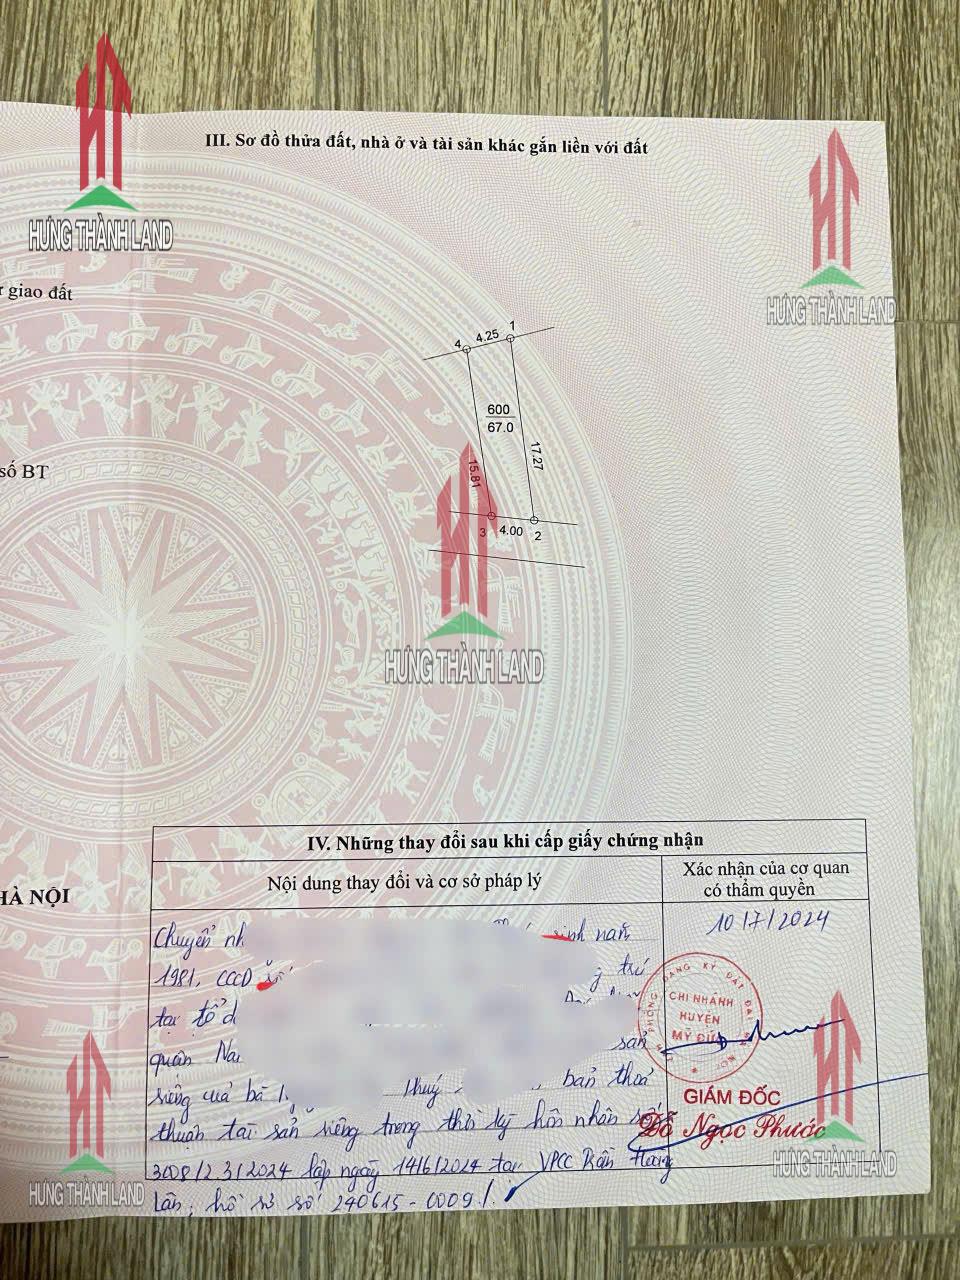 III. Sơ đồ thửa đất, nhà ở và tài sản khác gắn liền với đất
HƯNG THÀNH LAND
HƯNG THÀNH LAND
giao đất
1
4.25
4
600
67.0
số BT
15.81
17.27
3
4.00
2
HƯNG THÀNH LAND
IV. Những thay đổi sau khi cấp giấy chứng nhận
Nội dung thay đổi và cơ sở pháp lý
Xác nhận của cơ quan
có thẩm quyền
HÀ NỘI
10/7/2024
Chuyển nh
sinh năm
1981, CCCD
trú
tại tổ d
quận Na
sản
riêng của bà
Thuý
bản thoả
thuận tài sản riêng trong thời kỳ hôn nhân số
3008/2.3/2024 lập ngày 14/6/2024 tại VPCC Trần
Lân, hồ sơ số 240615-0009./.
ĐĂNG KÝ ĐẤT ĐAI
CHI NHÁNH
HUYỆN
MỸ ĐỨC
GIÁM ĐỐC
Đỗ Ngọc Phước
HƯNG THÀNH LAND
HƯNG THÀNH LAND